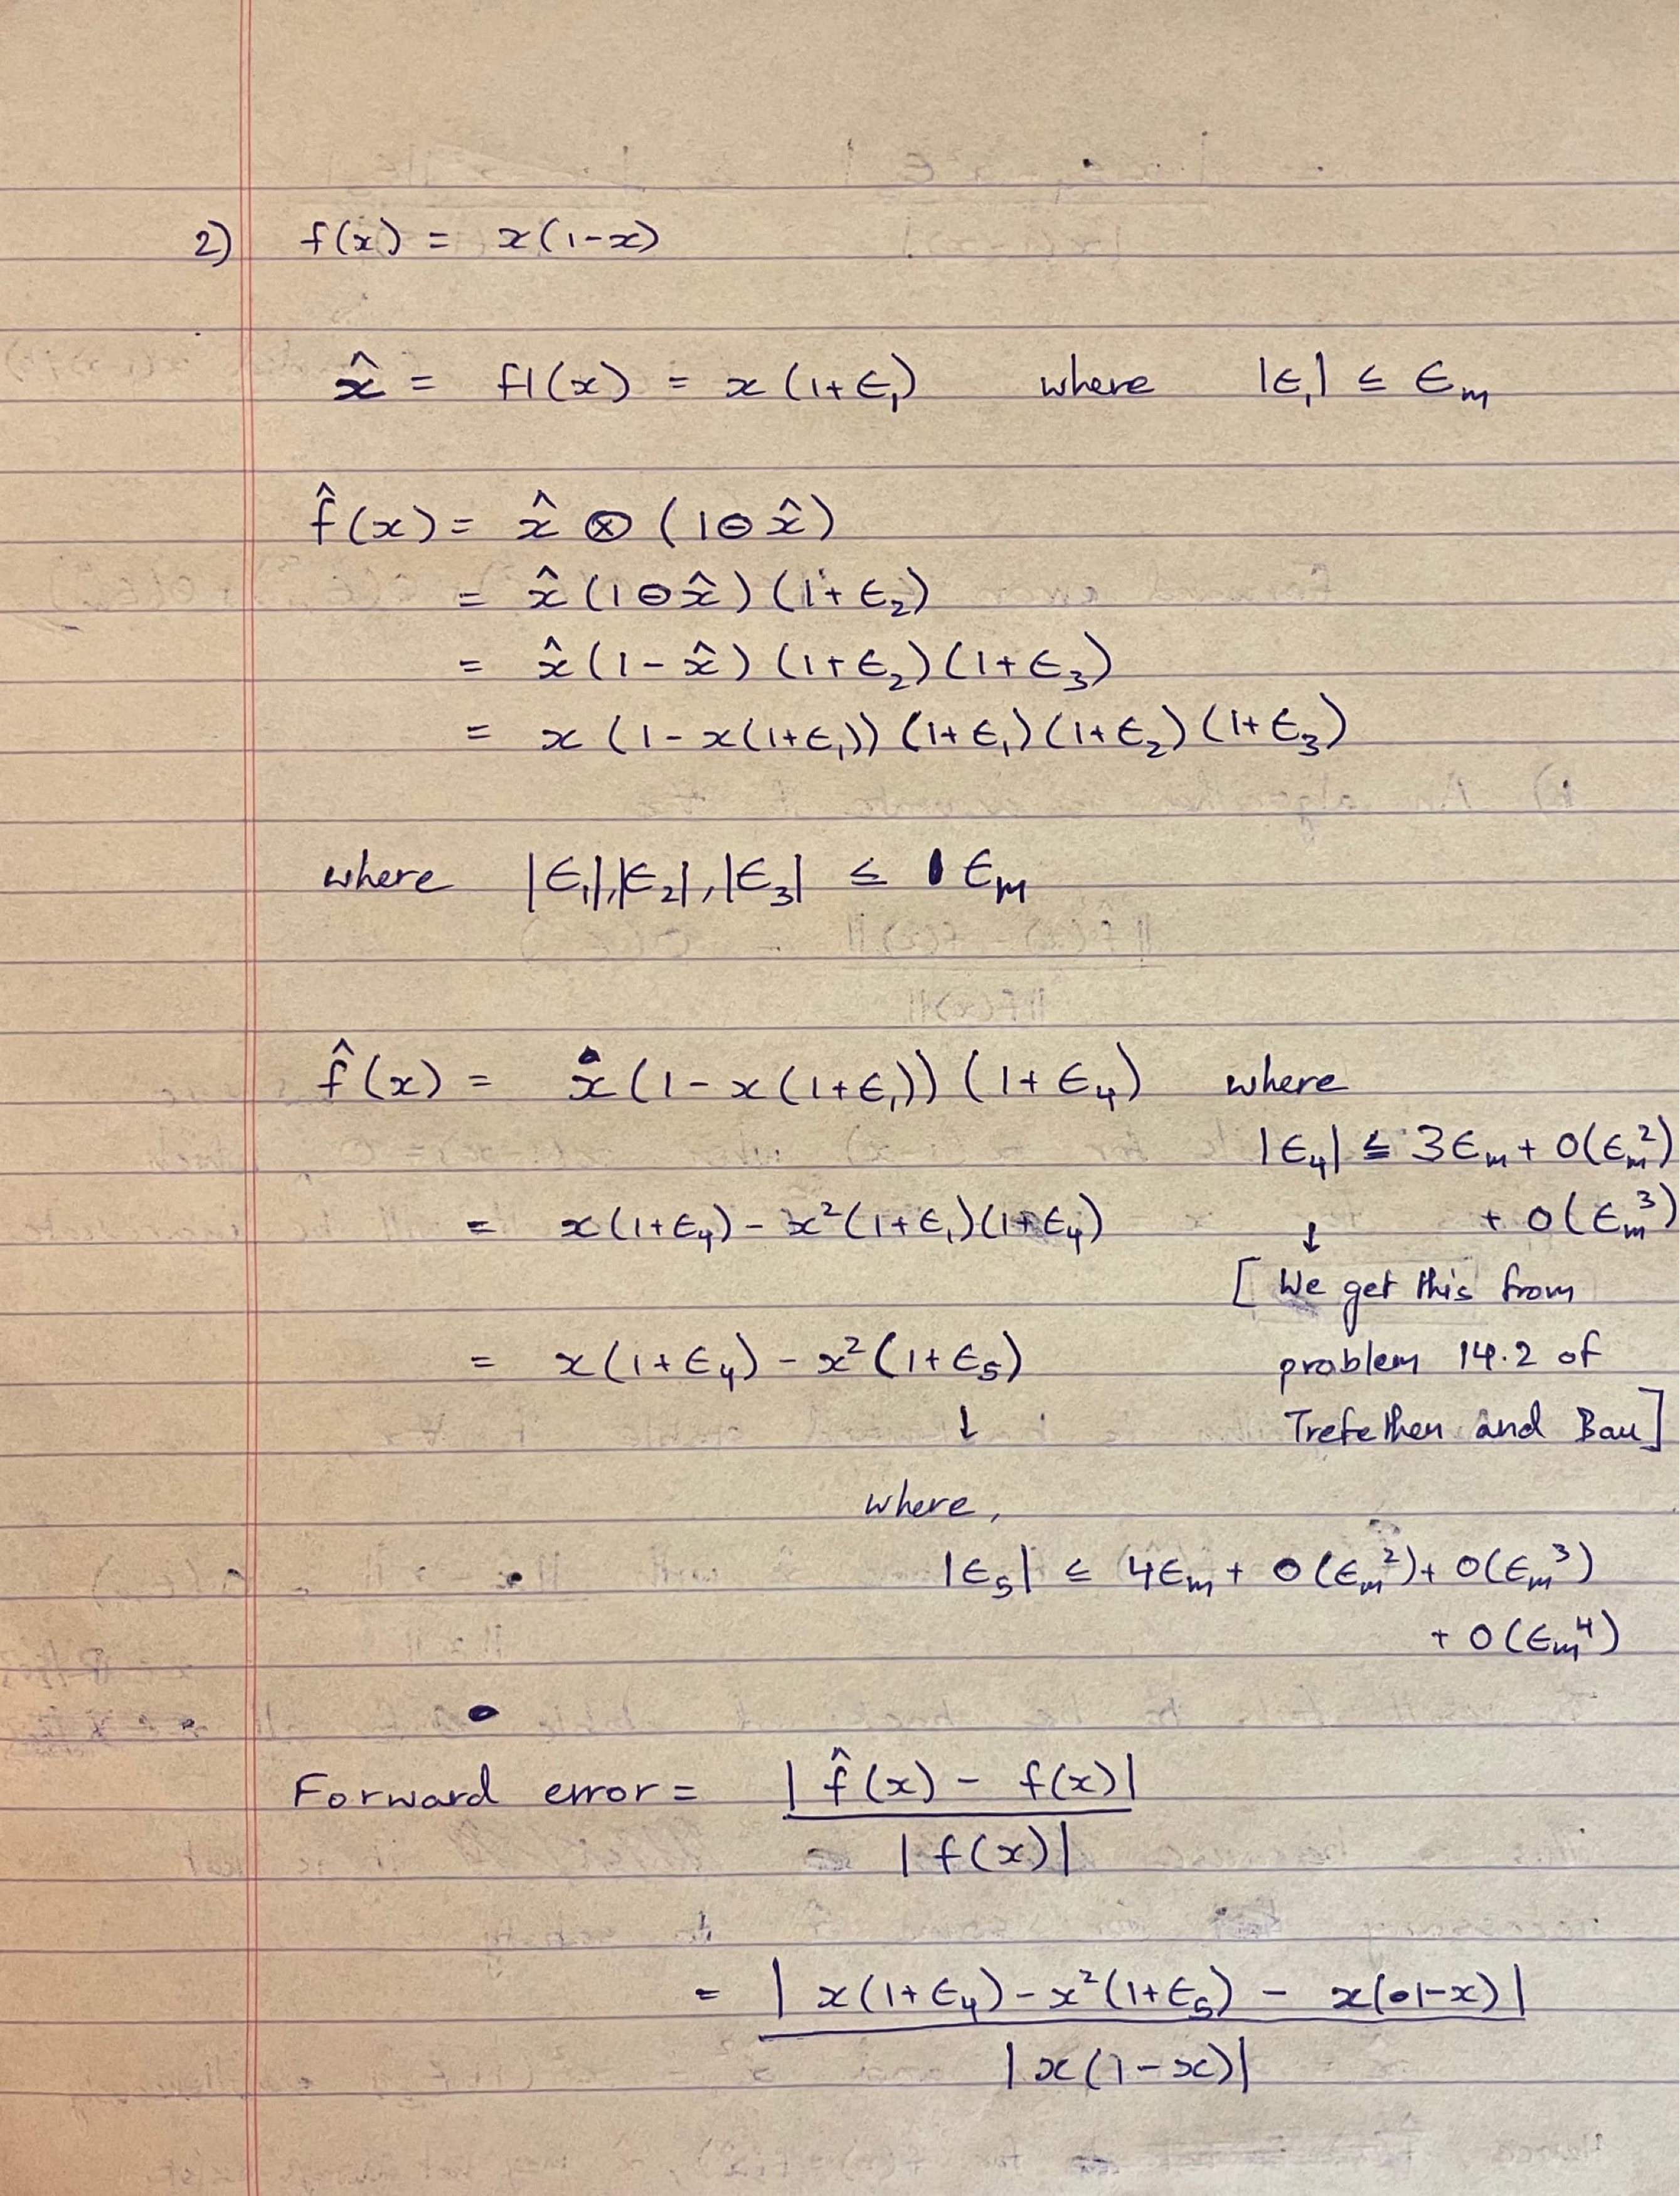 2) f(x) = x(1-x)
x̂ = fl(x) = x(1+ϵ₁) where |ϵ₁| ≤ ϵₘ
f̂(x) = x̂ ⊗ (1⊖x̂)
= x̂(1⊖x̂)(1+ϵ₂)
= x̂(1-x̂)(1+ϵ₂)(1+ϵ₃)
= x(1-x(1+ϵ₁))(1+ϵ₁)(1+ϵ₂)(1+ϵ₃)
where |ϵ₁|,|ϵ₂|,|ϵ₃| ≤ ϵₘ
f̂(x) = x(1-x(1+ϵ₁))(1+ϵ₄) where
|ϵ₄| ≤ 3ϵₘ + O(ϵₘ²)
+ O(ϵₘ³)
= x(1+ϵ₄) - x²(1+ϵ₁)(1+ϵ₄) ↓
[We get this from
= x(1+ϵ₄) - x²(1+ϵ₅) problem 14.2 of
↓ Trefethen and Bau]
where,
|ϵ₅| ≤ 4ϵₘ + O(ϵₘ²) + O(ϵₘ³)
+ O(ϵₘ⁴)
Forward error = |f̂(x) - f(x)|
|f(x)|
= |x(1+ϵ₄) - x²(1+ϵ₅) - x(1-x)|
|x(1-x)|